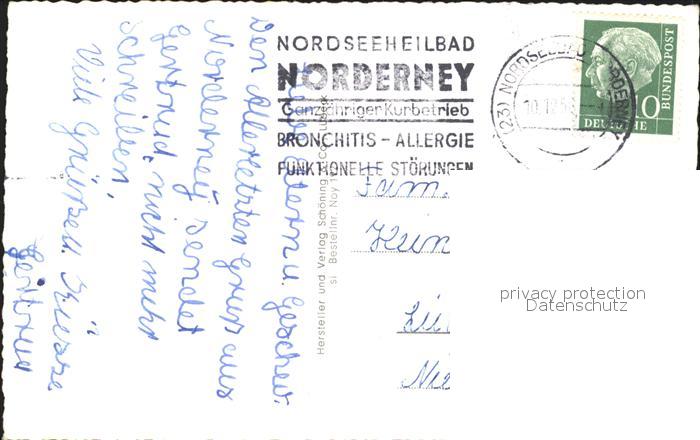 NORDSEEHEILBAD
NORDERNEY
Ganzjähriger Kurbetrieb
BRONCHITIS – ALLERGIE
FUNKTIONELLE STÖRUNGEN
(23) NORDSEEBAD NORDERNEY
10.12.5
DEUTSCHE BUNDESPOST
0
Liebe Eltern u. Geschw.
Den allerletzten Gruß aus
Norderney sendet
Gertrud, nicht mehr
schreiben,
Viele Grüße u. Küsse
Gertrud
Hersteller und Verlag Schöning & Co., Lübeck
si Bestellnr. Noy 1
Fam.
privacy protection
Datenschutz